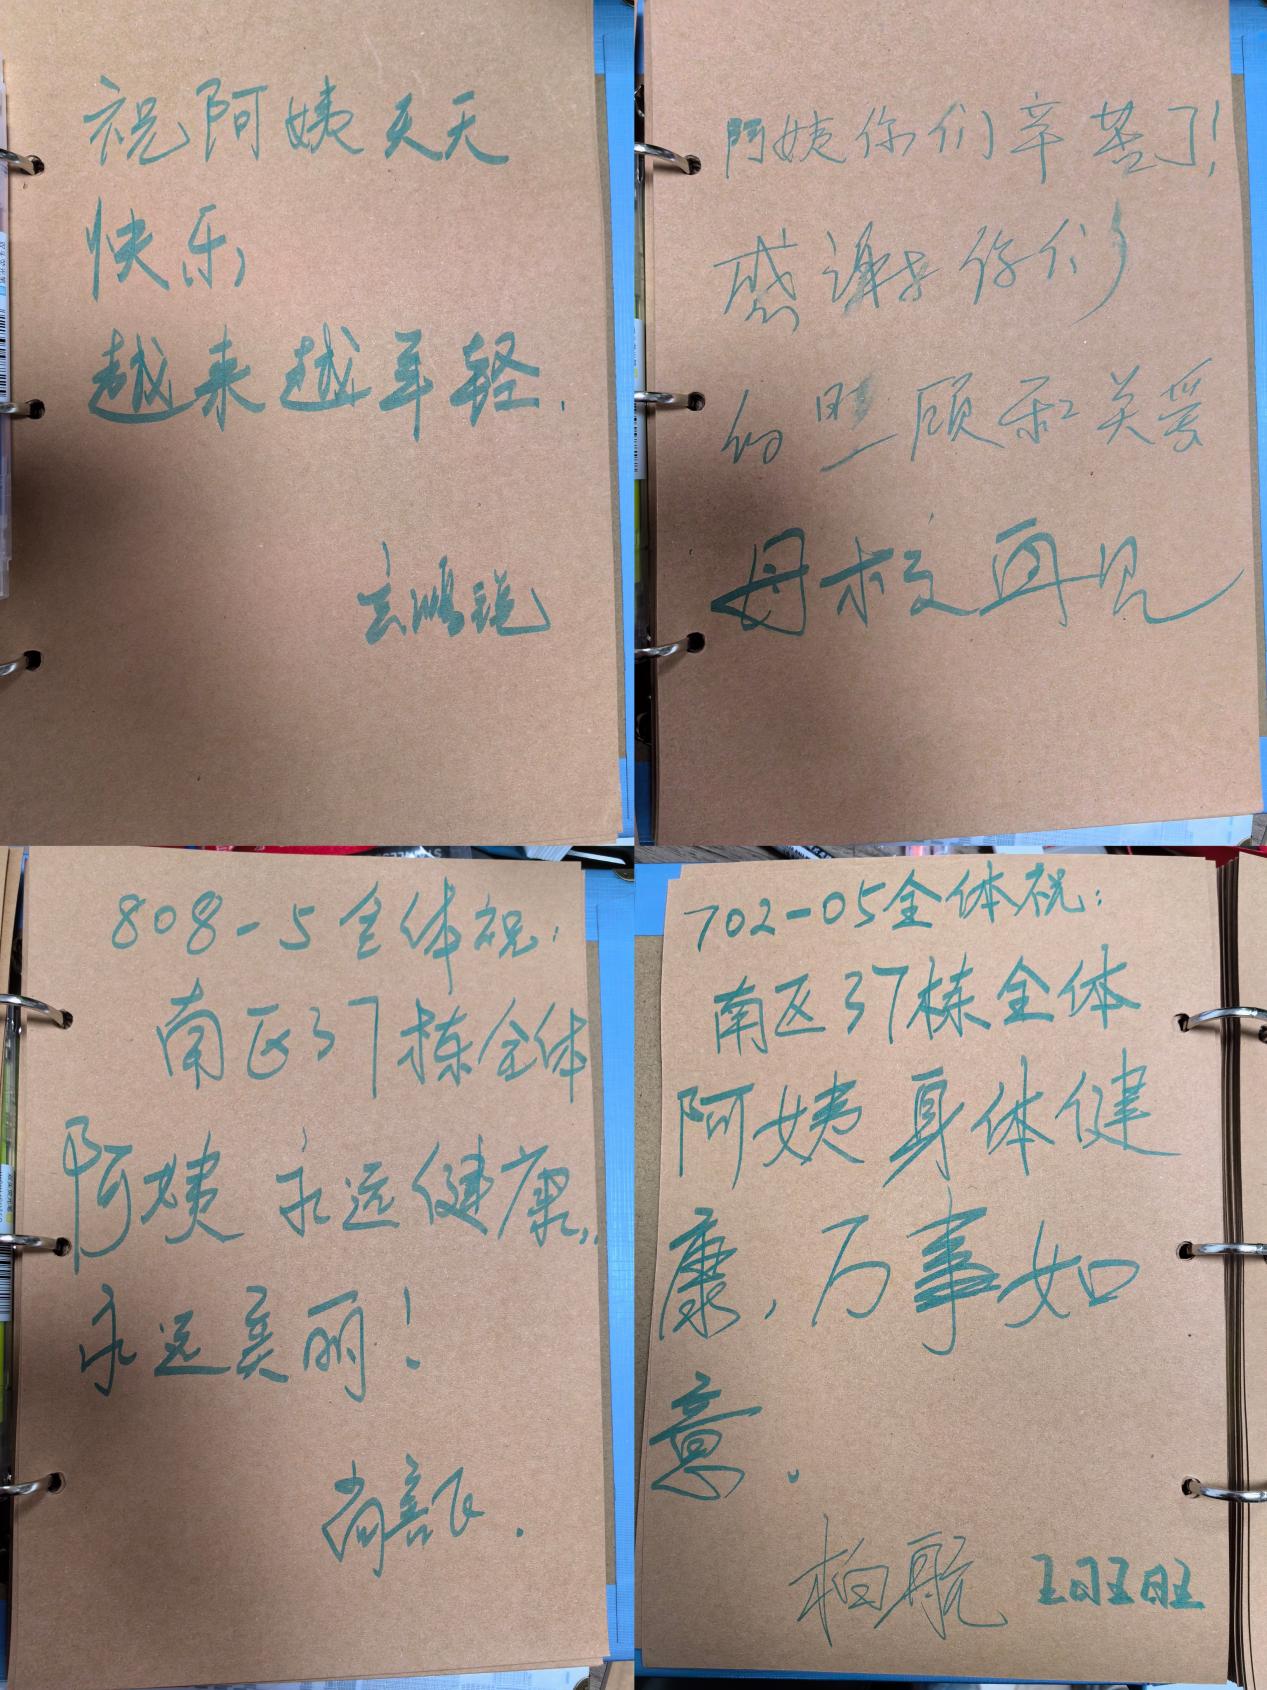 祝阿姨天天
快乐,
越来越年轻.
玄鸿锐
阿姨你们辛苦了!
感谢你们
的照顾和关爱
母校再见
808-5全体祝:
南区37栋全体
阿姨 永远健康,
永远美丽!
702-05全体祝:
南区37栋全体
阿姨身体健
康,万事如
意.
柏航 王旺旺